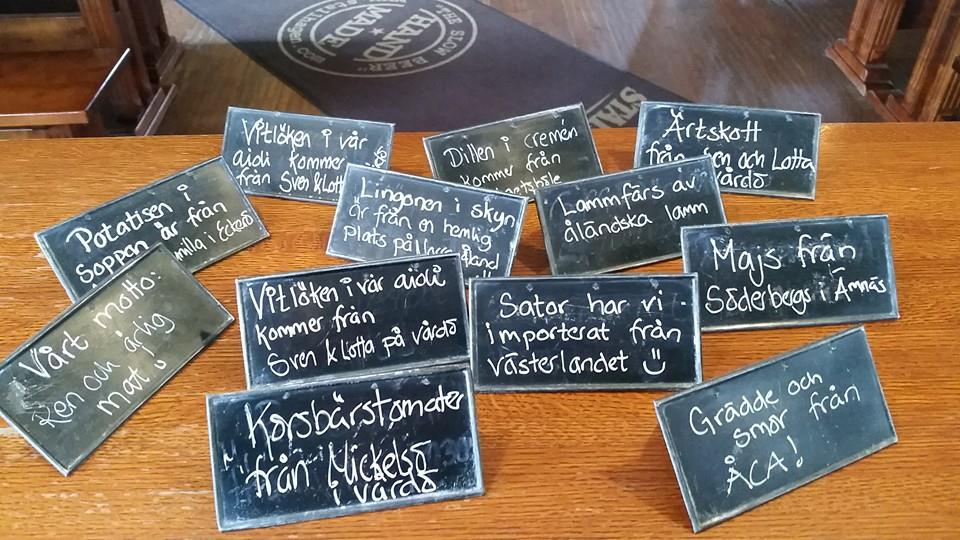 "THE SLOW BEER"
HAND
MADE
STAL
Vitlöken i vår
aioli kommer
från Sven & Lotta
Dillen i cremén
kommer från
Ärtskott
från Sven och Lotta
Vårdö
Potatisen i
Soppan är från
milla i Eckerö
Lingonen i skyn
är från en hemlig
plats på Åland
Lammfärs av
åländska lamm
Majs från
Söderbergs i Ämnäs
Vårt motto:
Ren och ärlig
mat!
Vitlöken i vår aioli
kommer från
Sven & Lotta på vårdö
Sator har vi
importerat från
västerlandet
Korsbärstomater
från Mickelsö
i vårdö
Grädde och
smör från
ÅCA!